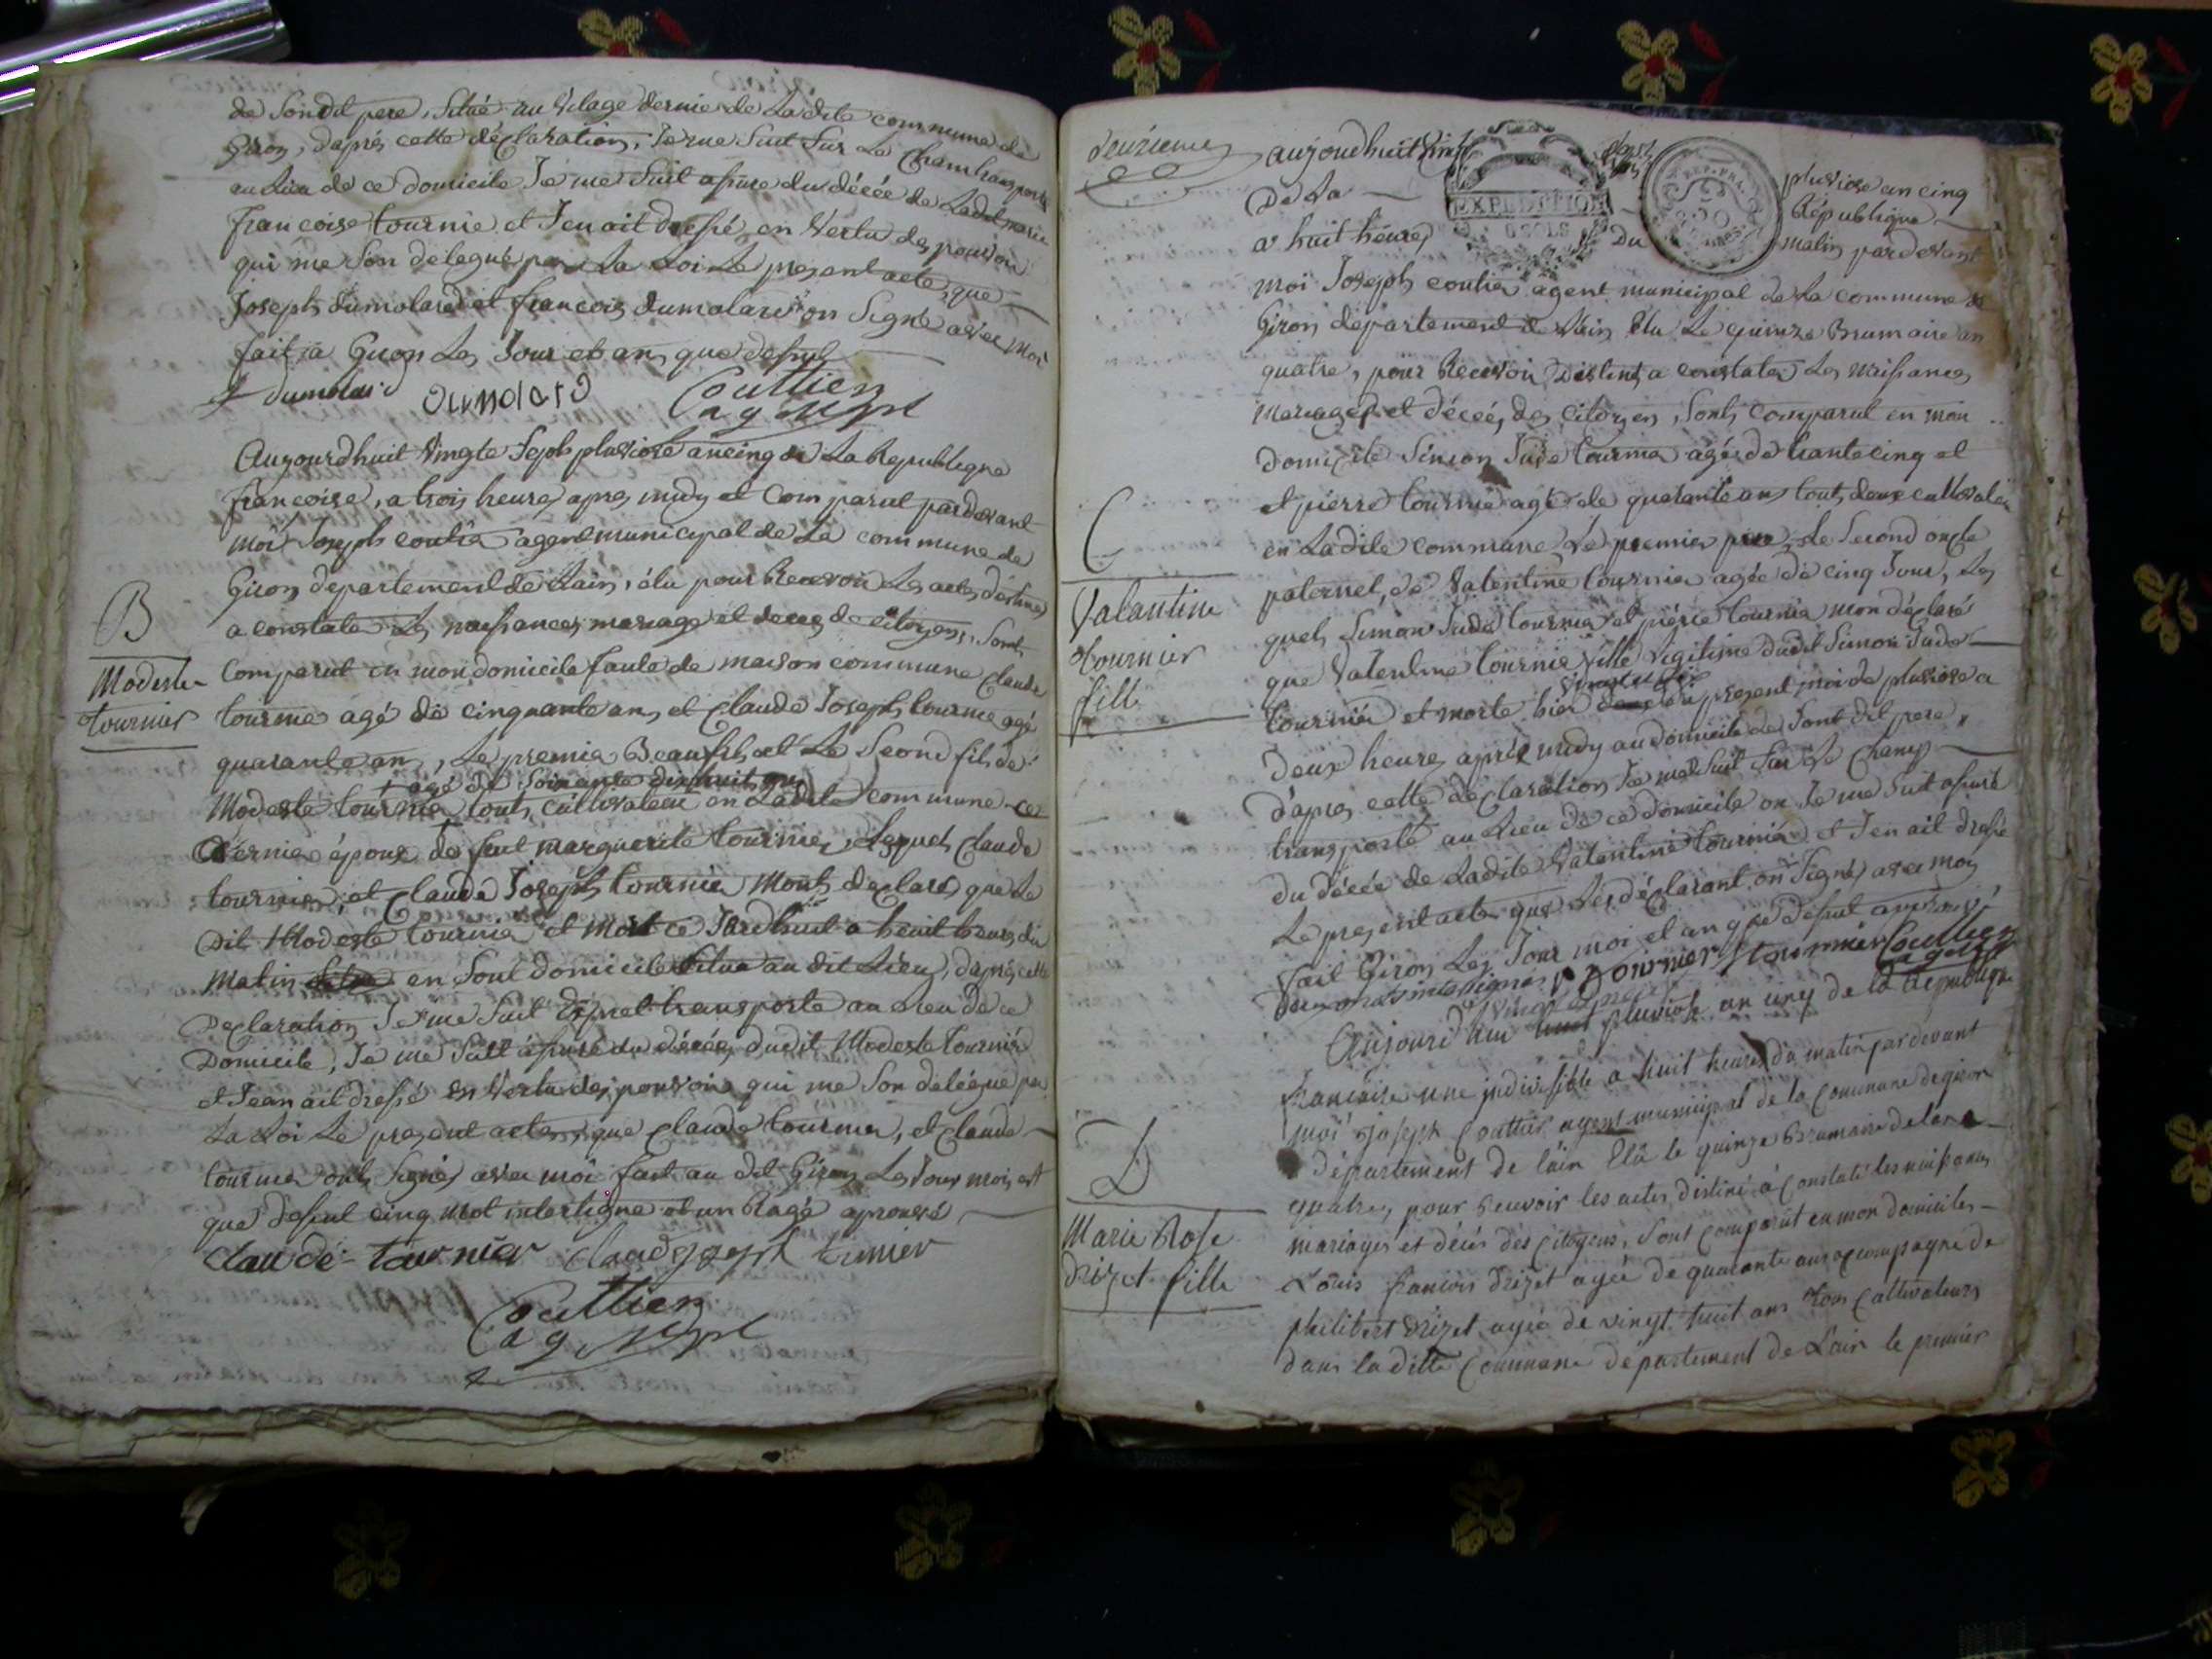 de Sondit pere, Situé au Vilage dernie de Ladite commune de
Giron, daprés cette déclaration, Je me Suit Sur Le Cham transporté
au Lieu de ce domicile Je me Suit assure du décée de Ladit marie
francoise tournie et J'en ait dressé en Vertu des pouvoir
qui me Son delegué par La Loi Le present acte, que
Joseph Dumolard et francois dumolard on Signé avec Moi
fait a Giron Les Jour et an que dessus
J dumolard dumolard Couttier
ag mpl
Aujourdhuit Vingte Seph pluviose an cinq de La Republique
francoise, a trois heures apres midy et Comparut pardevant
Moi Joseph coutier agent municipal de La commune de
Giron departement de Lain, élu pour Recevoir Les actes déstinés
a constater Les naissances mariage et deces de Citoyens, Sont
Comparut en mon domicile faute de maison commune Claude
tournie agé de cinquante an, et Claude Joseph tournie agé
quarante an, Le premier Beaufils et Le Seond fils de
+ agé de Soixante dix huit ans
Modeste tournie touts cultivateur en Ladite commune ce
dernier époux de feut marguerite tournier, Lequels Claude
tournier, et Claude Joseph tournier Monts declaré que Le
Dit Modeste tournier et Mort ce Jourdhuit a heuit heures du
Matin en Sont domicile Situé au dit Lieu, daprés cette
Declaration Je me Suit transporte au Lieu de ce
Domicile, Je me Suit assuré du décées dudit Modeste tournier
et J'ean ait dressé en Vertu des pouvoirs qui me Son deléegué par
La Loi Le present actes, que Claude tournier, et Claude
tournier onts Signés avec moi fait au dit Giron Les Jour mois et
que dessut cinq mot interligne et un Ragé aprouvé
Claude tournier Claudejoseph turnier
Couttier
ag mpl
B
Modeste
tournier
deuxieme
aujourdhuit Vingt pluviose an cinq
De La République
a huit heures du matin pardevant
moi Joseph coutier agent municipal de La commune de
Giron département de Lain Elu Le quinze Brumaire an
quatre, pour Recevoir Destinés a constater Les naissances
mariages et décées des citoyens, Sonts Comparut en mon
domicile Simon Jude tournier agé de trante cinq et
et pierre tournier agé de quarante ans touts deux cultivateur
en Ladite commune Le premier pere, Le Second oncle
paternel, de Valentine tournier agée de cinq Jour, Les
quels Simon Jude tournier et piérre tournier mon déclaré
que Valentine tournie fille Legitime dudit Simon Jude
tournier et morte hier du present moi de pluviose a
deux heures aprés midy au domicile de Sont dit pere,
d'apres cette déclaration Je me Suit Sur Le Champ
transporté au Lieu de ce domicile ou Je me Suit assuré
du décée de Ladite Valentine tournier et J'en ait dressé
Le present acte que Les déclarant on Signés avec moi
fait Giron Les Jour moi et an que dessut aprouvé
deux mots interlignes P Tournier S tournier Couttier
ag mpl
C
Valantine
tournier
fille
vingt neuf
Aujourd'hui pluviose an cinq de la République
francaise une indivisible a huit heures du matin par devant
moi Joseph Couttier agent municipal de la Commune de giron
département de lain Elû le quinze Brumaire de lan
quatre, pour recevoir les actes destiné à Constaté les naissances
mariages et décés des Citoyens, Sont Comparût en mon domicile
Louis francois Drizet agée de quarante ans accompagné de
philibert Drizet agée de vingt huit ans tous Cultivateurs
dans laditte Commune département de Lain le premier
D
Marie Rose
Drizet fille
EXPEDITION
REP. FRA.